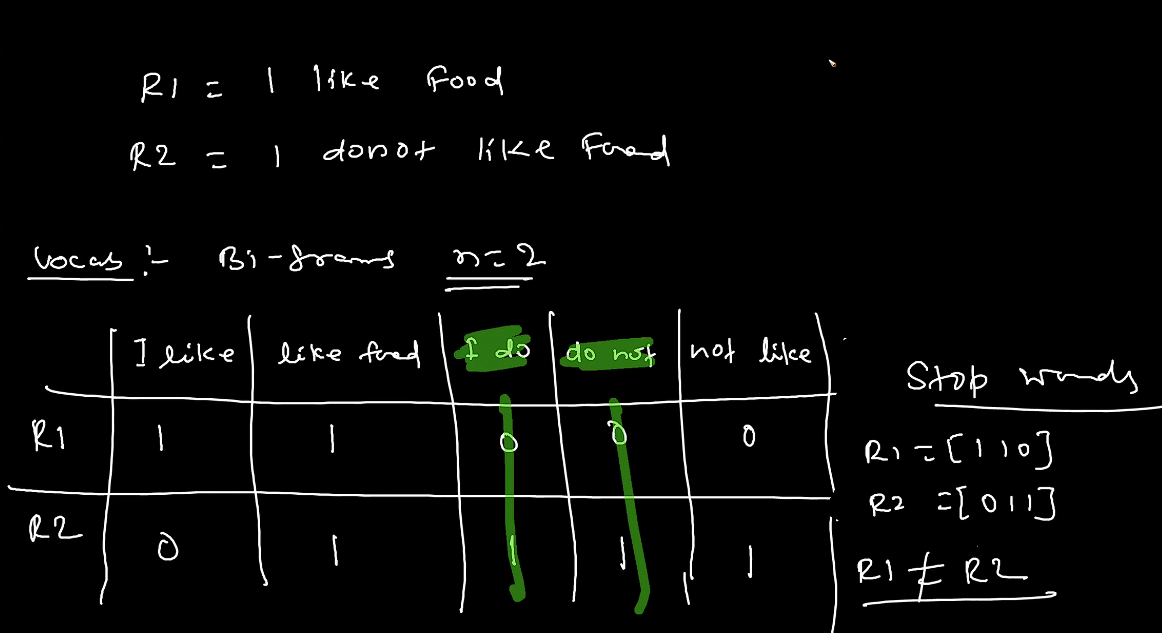 R1 = I like Food
R2 = I donot like Food
Vocab :- Bi-grams n=2
I like like food I do do not not like
R1 1 1 0 0 0
R2 0 1 1 1 1
Stop words
R1 = [1 1 0]
R2 = [0 1 1]
R1 ≠ R2